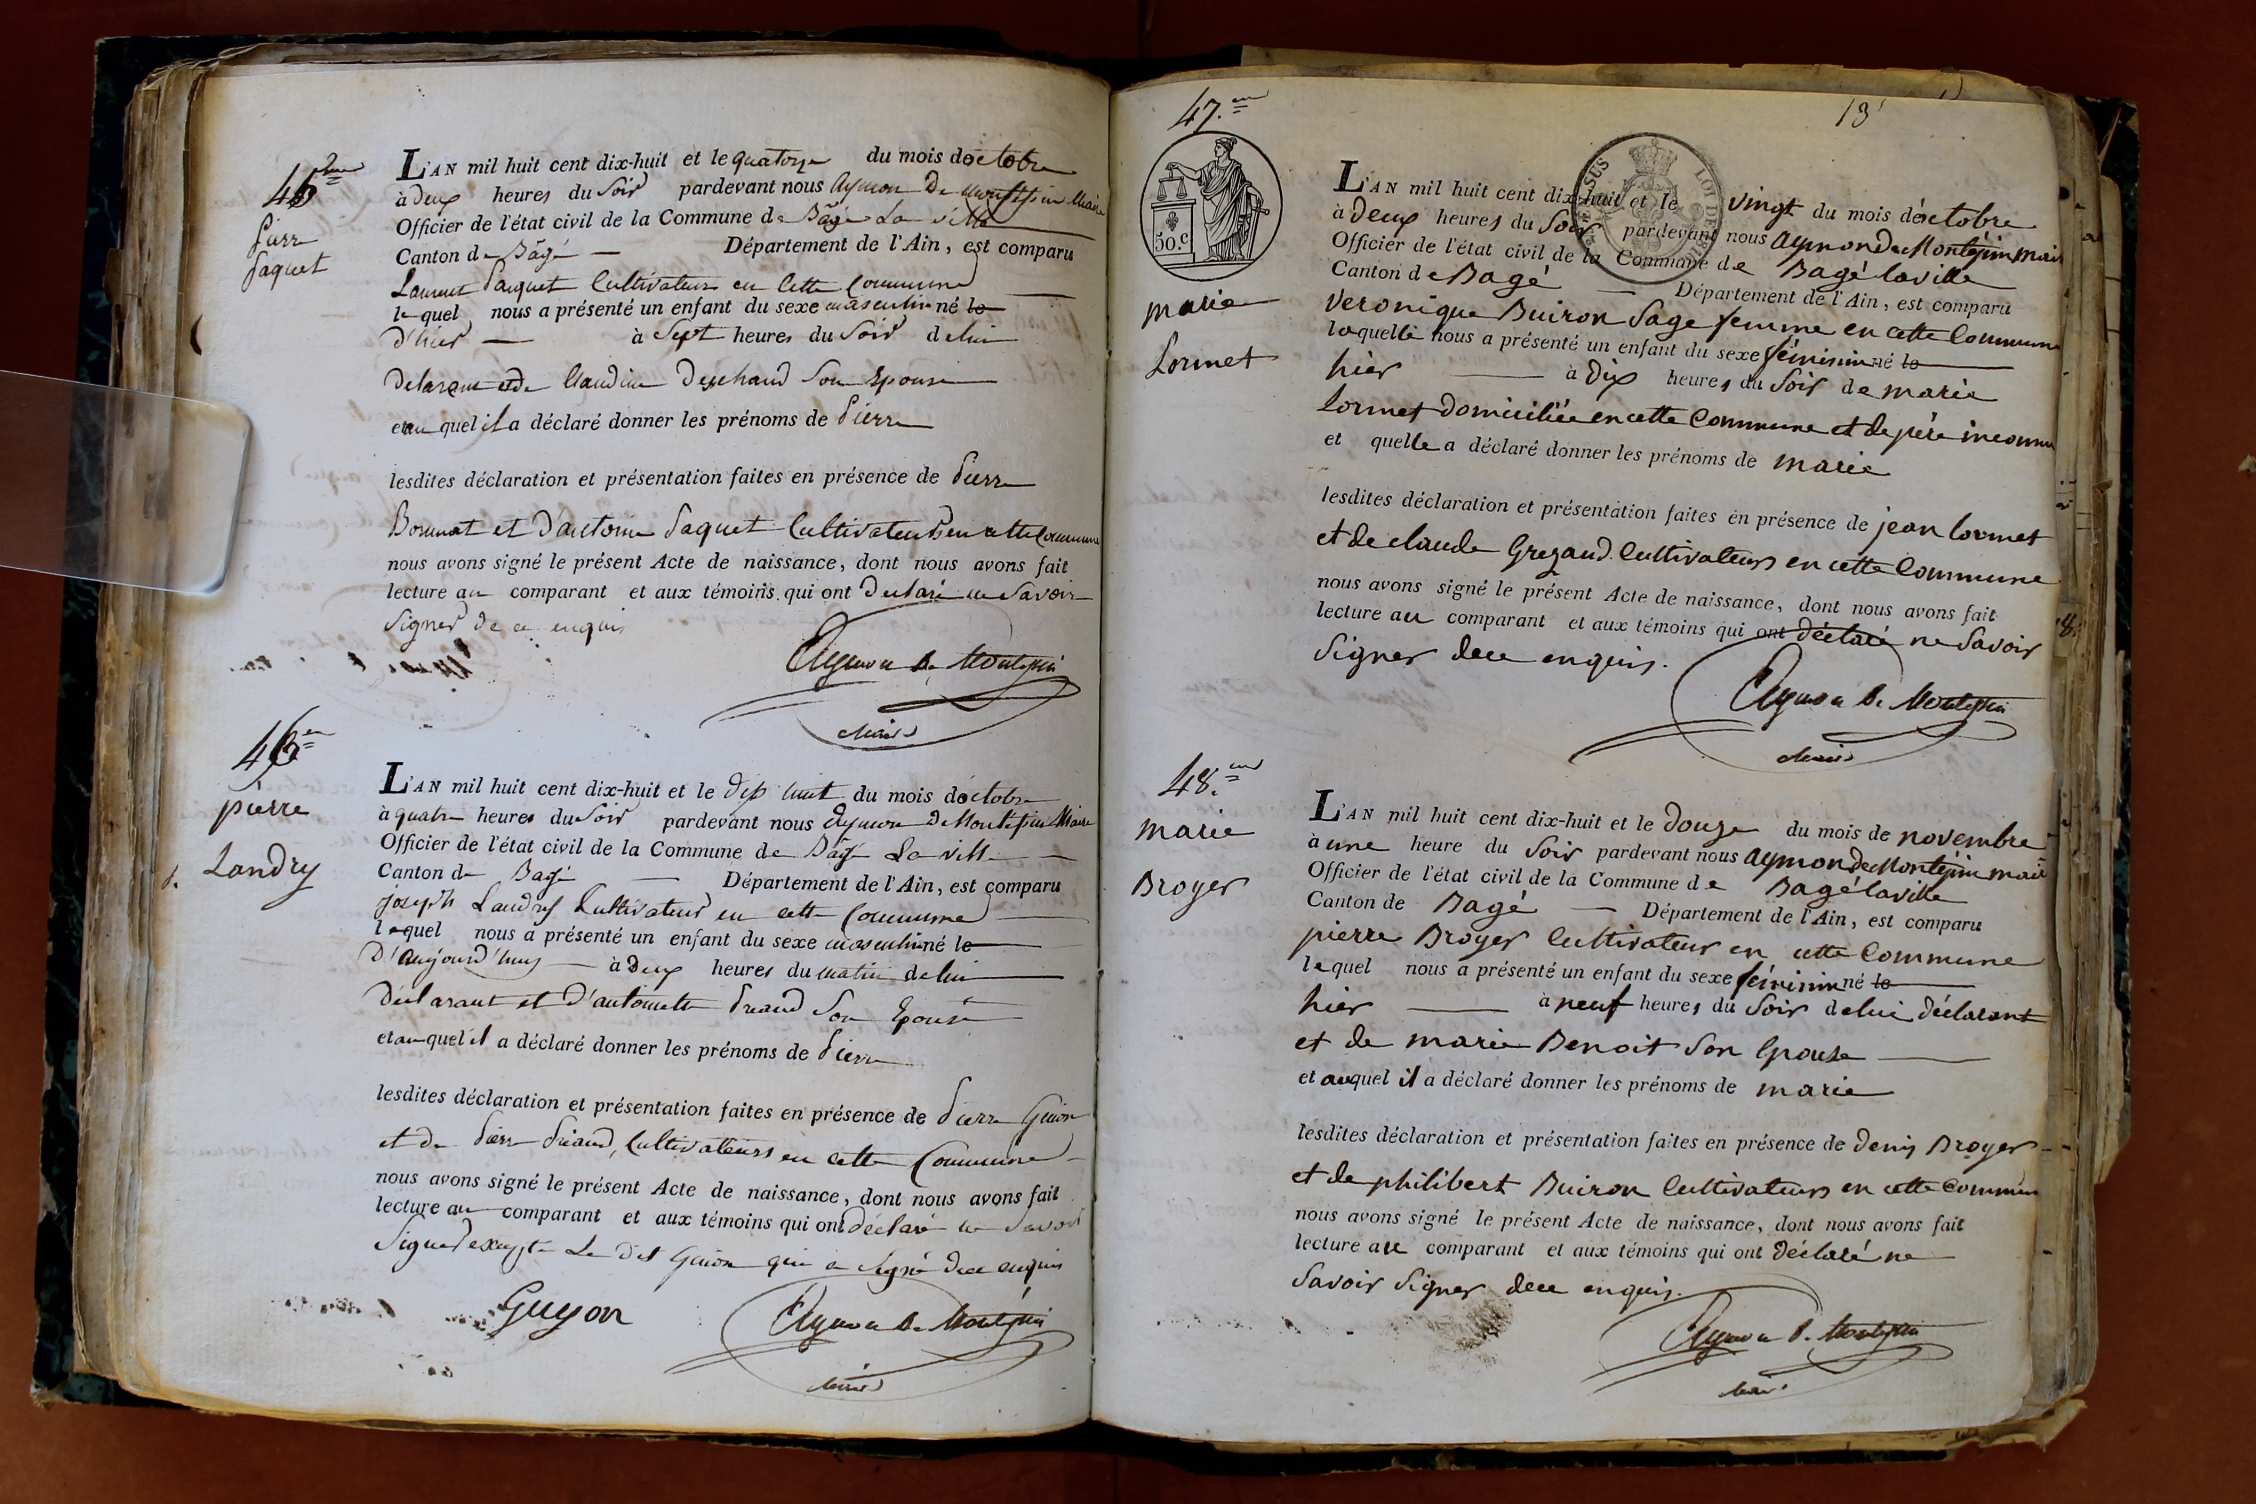 45me
Pierre
Paquet
L'AN mil huit cent dix-huit et le quatorze du mois doctobre
à deux heures du Soir pardevant nous Aymon De Montépin Maire
Officier de l'état civil de la Commune de Bagé La ville
Canton de Bagé — Département de l'Ain, est comparu
Laurent Paquet Cultivateur en Cette Commune
lequel nous a présenté un enfant du sexe masculin né le
d'hier — à Sept heures du Soir de lui
Déclarant et de Claudine Deschand Son Epouse
et au quel il a déclaré donner les prénoms de Pierre
lesdites déclaration et présentation faites en présence de Pierre
Bonnat et d'antoine Paquet Cultivateurs en cette Commune
nous avons signé le présent Acte de naissance, dont nous avons fait
lecture au comparant et aux témoins qui ont Déclaré ne Savoir
Signer de ce enquis
Aymon De Montépin
Maire
46me
pierre
Landry
L'AN mil huit cent dix-huit et le dix huit du mois doctobre
à quatre heures du Soir pardevant nous Aymon De Montépin Maire
Officier de l'état civil de la Commune de Bagé La ville
Canton de Bagé — Département de l'Ain, est comparu
joseph Landry Cultivateur en cette Commune
lequel nous a présenté un enfant du sexe masculin né le
D'aujourd'huy — à deux heures du matin de lui
Déclarant et d'antoinette Préaud Son Epouse
et au quel il a déclaré donner les prénoms de Pierre
lesdites déclaration et présentation faites en présence de Pierre Guion
et de Pierre Préaud, Cultivateurs en cette Commune
nous avons signé le présent Acte de naissance, dont nous avons fait
lecture au comparant et aux témoins qui ont déclaré ne Savoir
Signer excepté Le dit Guion qui a Signé de ce enquis
Guyon
Aymon De Montépin
Maire
47.me
13
50.c
marie
Lormet
L'AN mil huit cent dix-huit et le vingt du mois d'octobre
à deux heures du Soir pardevant nous Aymon De Montépin Maire
Officier de l'état civil de la Commune de Bagé laville
Canton de Bagé — Département de l'Ain, est comparu
veronique Buiron Sage femme en cette Commune
laquelle nous a présenté un enfant du sexe féminin né le
hier — à dix heures du Soir de marie
Lormet domiciliée en cette Commune et de père inconnu
et quelle a déclaré donner les prénoms de marie
lesdites déclaration et présentation faites en présence de jean lormet
et de claude Grezaud Cultivateurs en cette Commune
nous avons signé le présent Acte de naissance, dont nous avons fait
lecture au comparant et aux témoins qui ont déclaré ne Savoir
Signer de ce enquis.
Aymon De Montépin
Maire
48.me
marie
Broyer
L'AN mil huit cent dix-huit et le douze du mois de novembre
à une heure du Soir pardevant nous Aymon De Montépin Maire
Officier de l'état civil de la Commune de Bagé laville
Canton de Bagé — Département de l'Ain, est comparu
pierre Broyer Cultivateur en cette Commune
lequel nous a présenté un enfant du sexe féminin né le
hier — à neuf heures du Soir de lui déclarant
et de marie Benoit Son Epouse
et auquel il a déclaré donner les prénoms de marie
lesdites déclaration et présentation faites en présence de denis Broyer
et de philibert Buiron Cultivateurs en cette Commune
nous avons signé le présent Acte de naissance, dont nous avons fait
lecture au comparant et aux témoins qui ont déclaré ne
Savoir Signer de ce enquis.
Aymon De Montépin
Maire